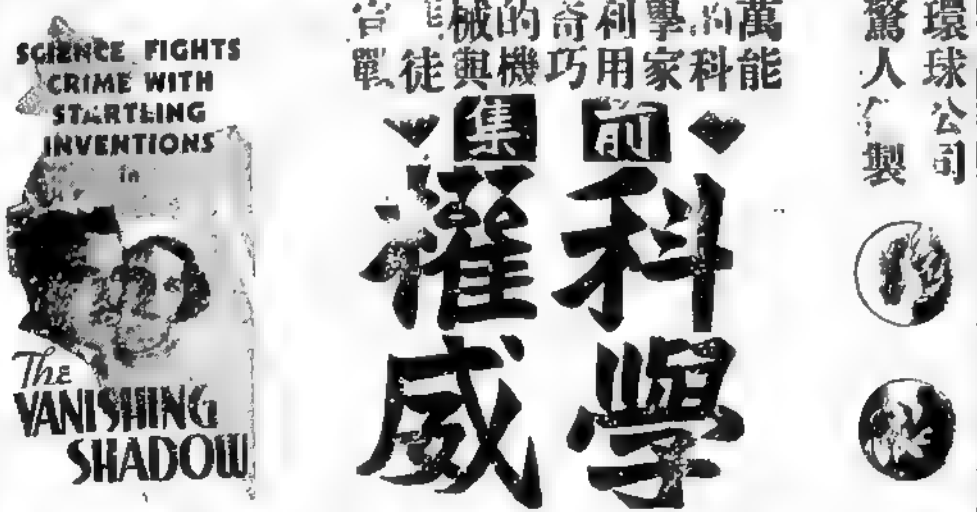 SCIENCE FIGHTS
CRIME WITH
STARTLING
INVENTIONS
in
The
VANISHING
SHADOW
環球公司
驚人製
萬能
的科
學家
利用
奇巧
的機
械與
徒
戰
前集
科學
權威